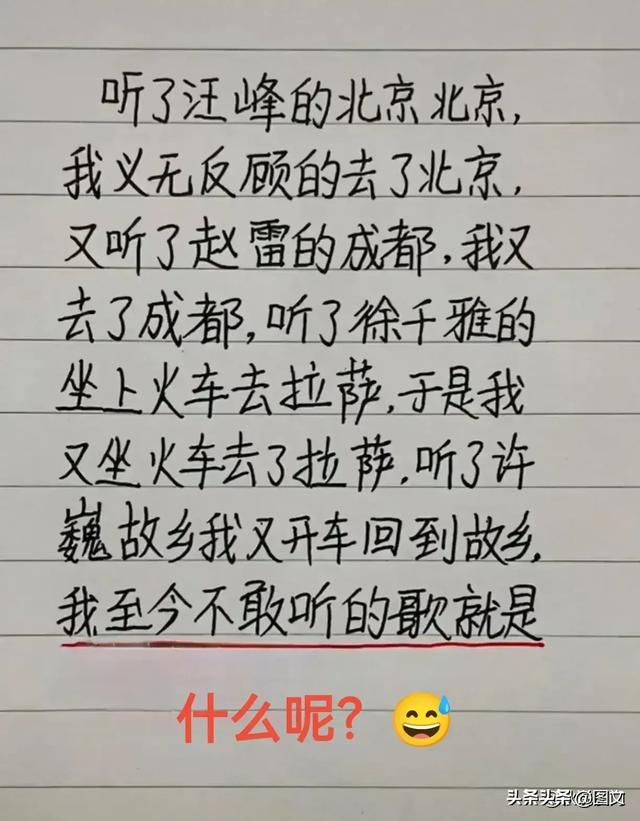 听了汪峰的北京北京,
我义无反顾的去了北京,
又听了赵雷的成都,我又
去了成都,听了徐千雅的
坐上火车去拉萨,于是我
又坐火车去了拉萨,听了许
巍故乡我又开车回到故乡,
我至今不敢听的歌就是
什么呢?😅
头条头条@图文